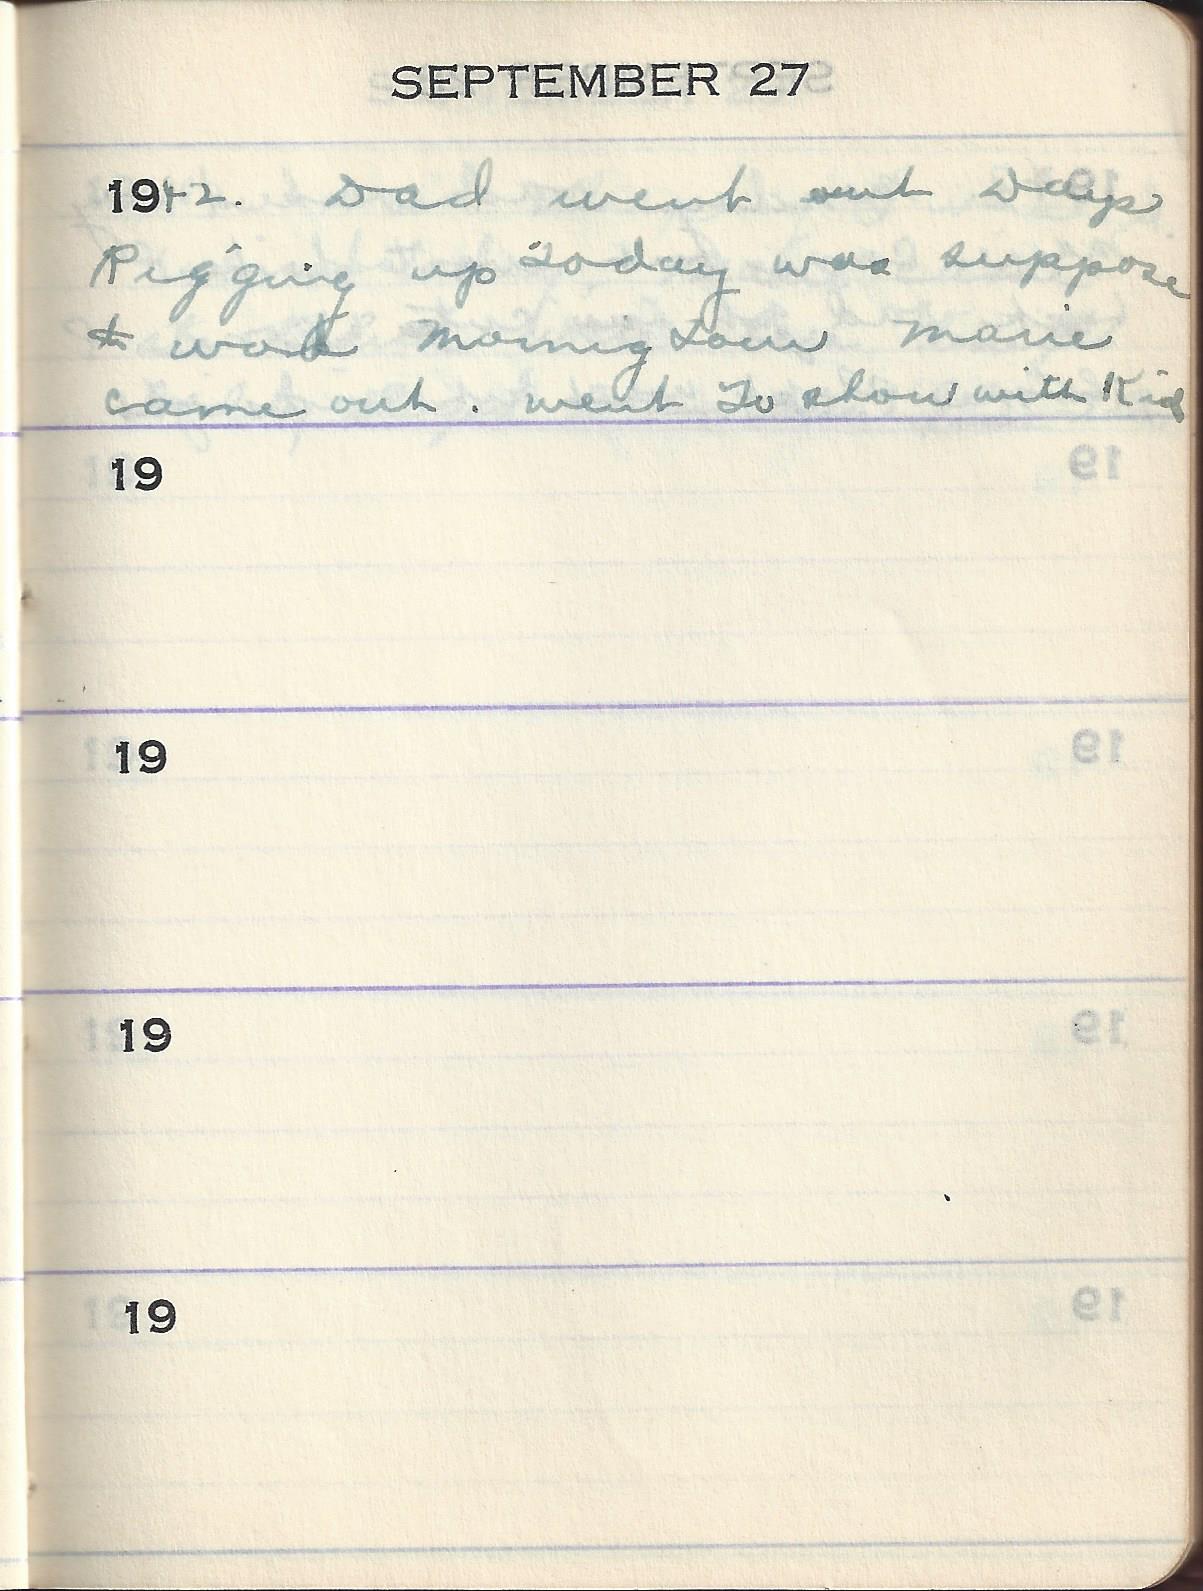 SEPTEMBER 27
1942. Dad went out Days
Rigging up Today was suppose
to work Morning Tour Marie
came out. went To show with Kid
19
19
19
19